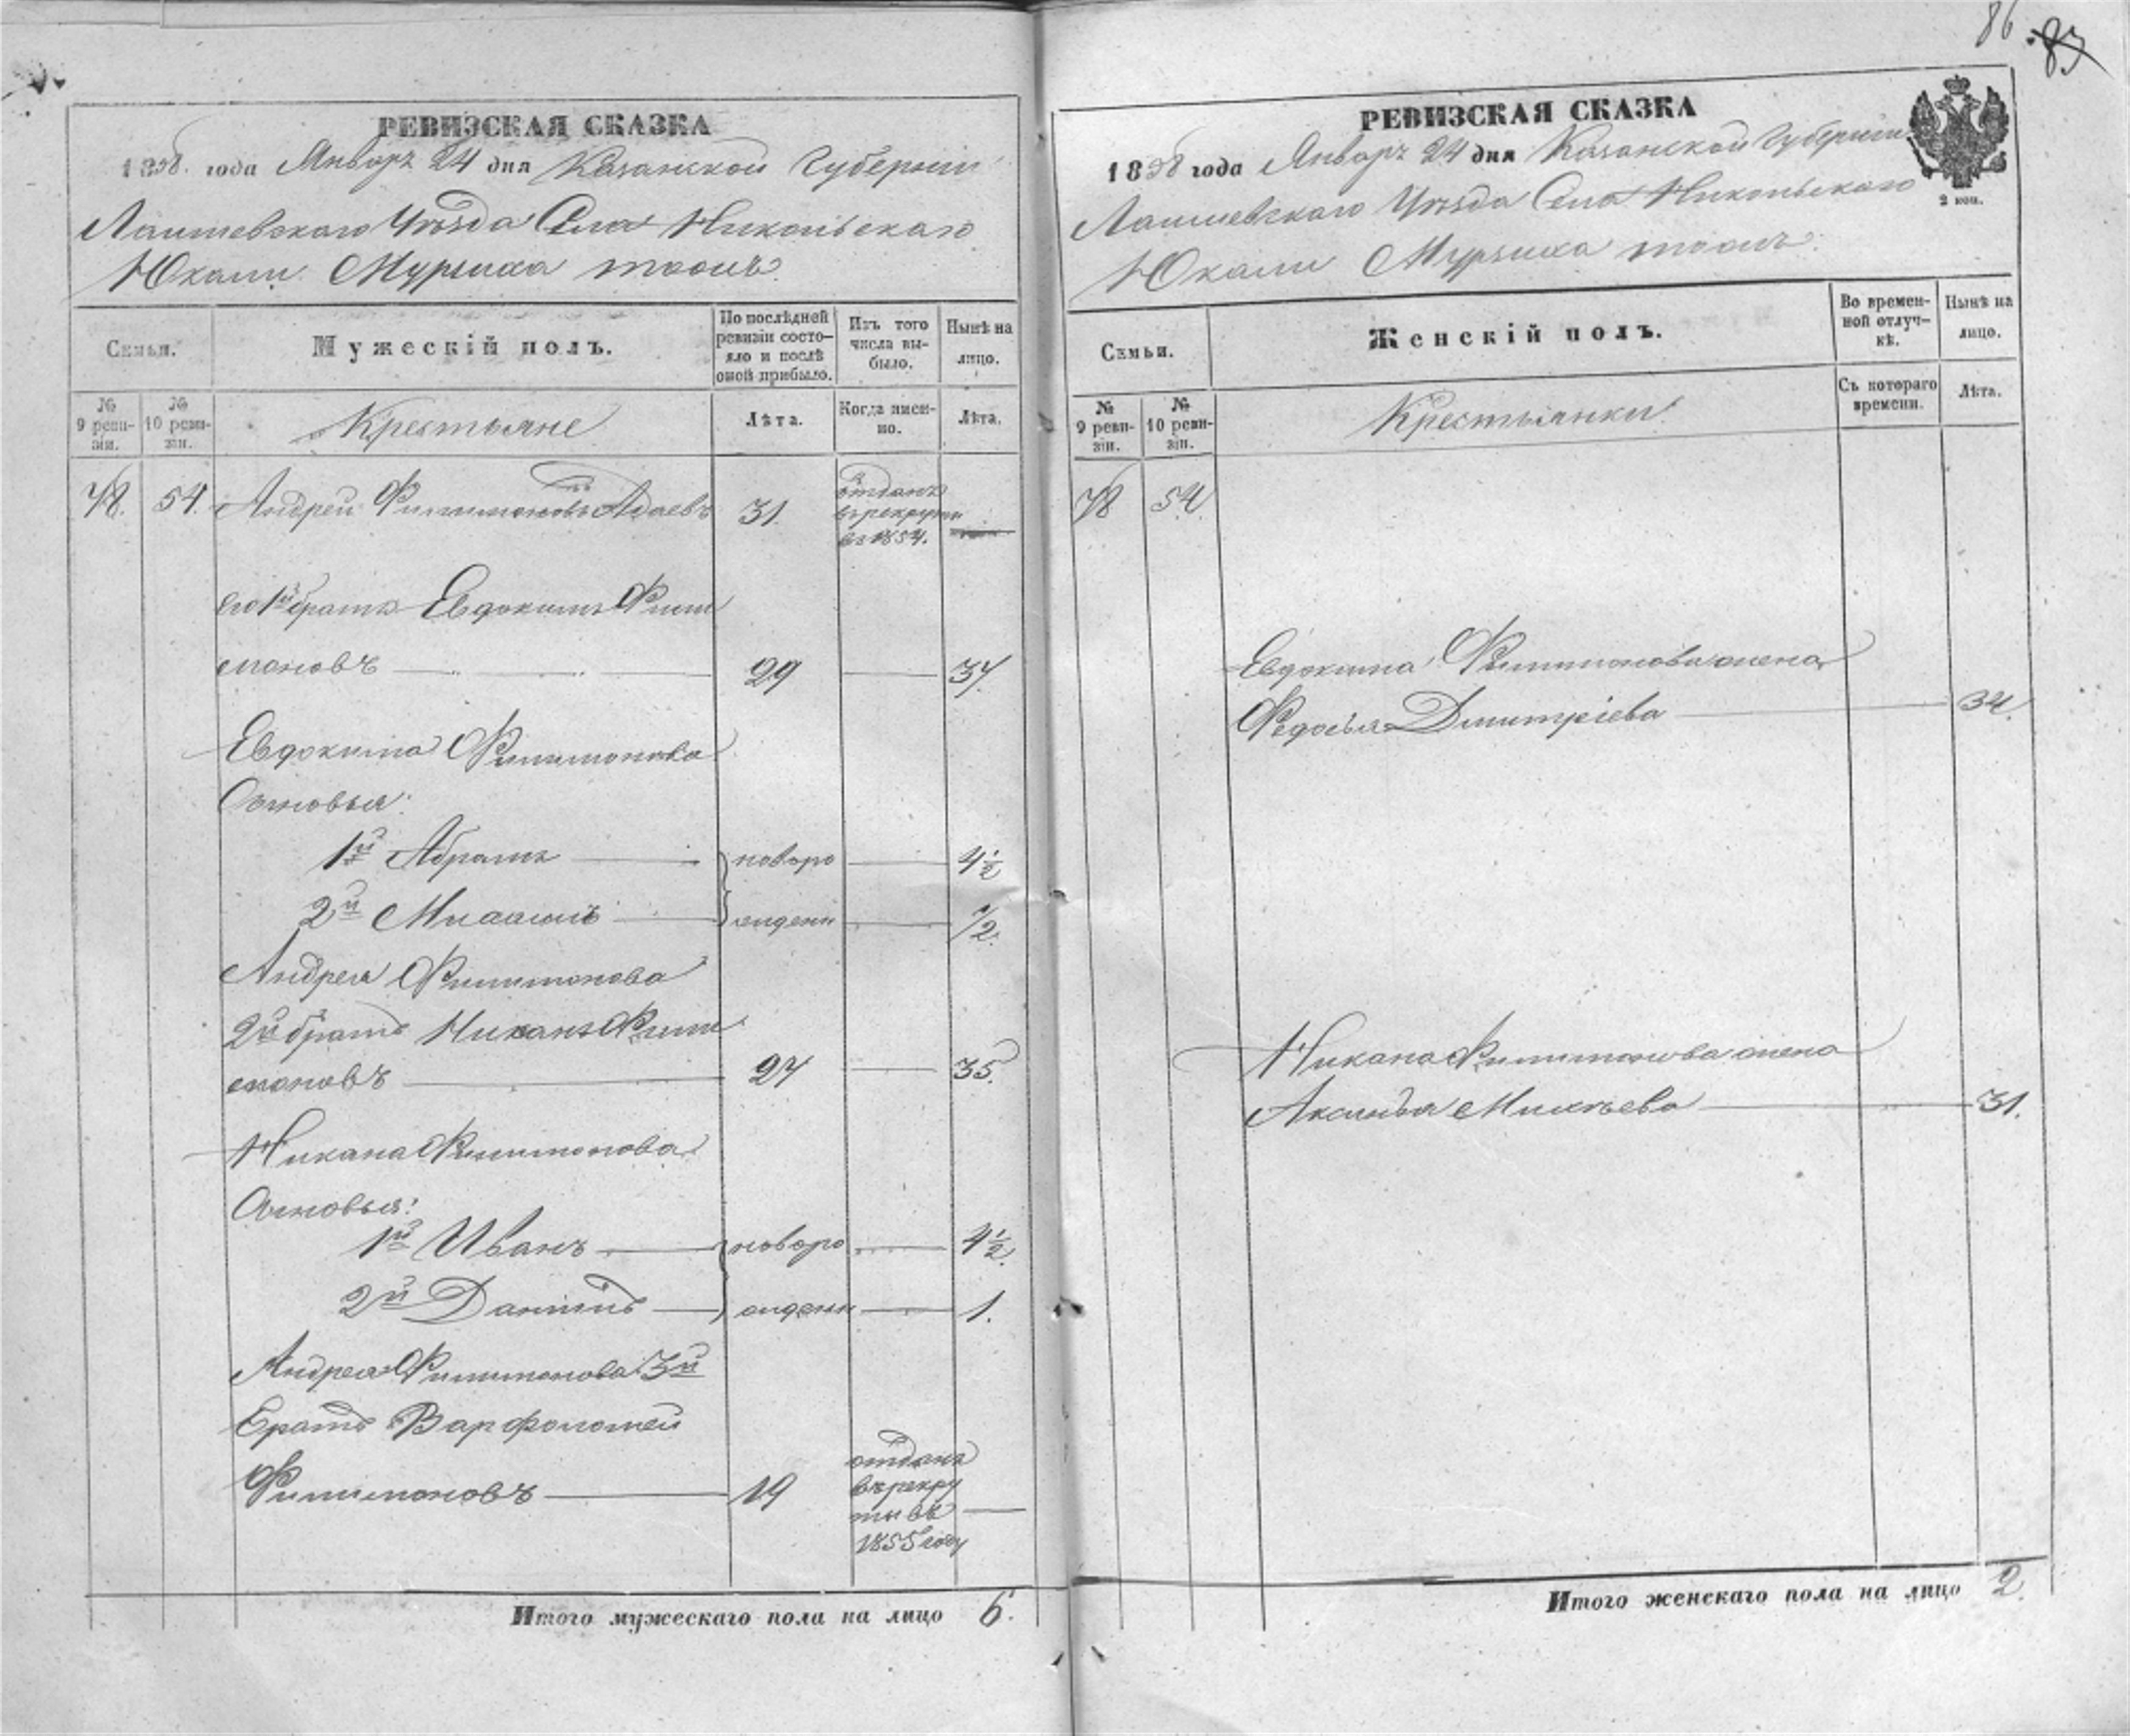 РЕВИЗСКАЯ СКАЗКА
1858. года Январь 24 дня Казанской Губернiи
Лаишевскаго Уѣзда Села Никольскаго
Юкали Мурзиха тоожъ.
Семьи.
Мужескiй полъ.
По послѣдней ревизiи состояло и послѣ оной прибыло.
Изъ того числа выбыло.
Нынѣ на лицо.
№ 9 ревизiи.
№ 10 ревизiи.
Крестьяне
Лѣта.
Когда имен-но.
Лѣта.
78. 54. Андрей Филимоновъ Адаевъ 31. отданъ
въ рекруты
въ 1854.
его 1й братъ Евдокимъ Фили
моновъ 29 37.
Евдокима Филимонова
Сыновья:
1й Абрамъ новоро 4½
2й Михаилъ жденн ½.
Андрея Филимонова
2й братъ Никанъ Фили
моновъ 27 35.
Никана Филимонова
Сыновья:
1й Иванъ новоро 4½.
2й Данiилъ жденн 1.
Андрея Филимонова 3й
братъ Варфоломей
Филимоновъ 19 отданъ
въ рекру
ты въ
1855 году
Итого мужескаго пола на лицо 6.
86. 83
РЕВИЗСКАЯ СКАЗКА
1858 года Январь 24 дня Казанской Губернiи
Лаишевскаго Уѣзда Села Никольскаго
Юкали Мурзиха тоожъ.
2 коп.
Семьи.
Женскiй полъ.
Во времен-ной отлуч-кѣ.
Нынѣ на лицо.
№ 9 реви-зiи.
№ 10 реви-зiи.
Крестьянки
Съ котораго времени.
Лѣта.
78 54.
Евдокима Филимонова жена
Федосья Дмитрiева 34.
Никана Филимонова жена
Аксинья Михѣева 31.
Итого женскаго пола на лицо 2.